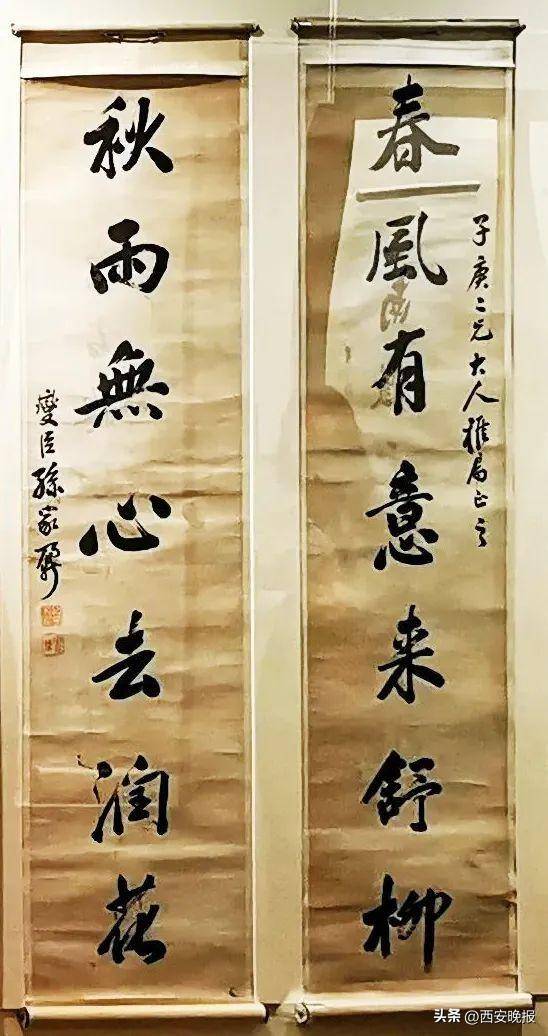 子庚二兄大人雅属正之
春風有意来舒柳
秋雨無心去润花
燮臣孫家鼐
头条 @西安晚报